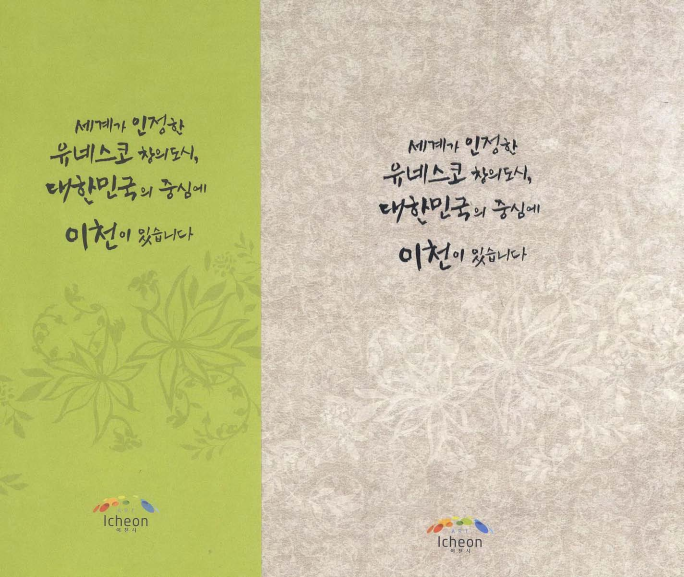 세계가 인정한
유네스코 창의도시,
대한민국의 중심에
이천이 있습니다
Icheon
이천시
세계가 인정한
유네스코 창의도시,
대한민국의 중심에
이천이 있습니다
Icheon
이천시